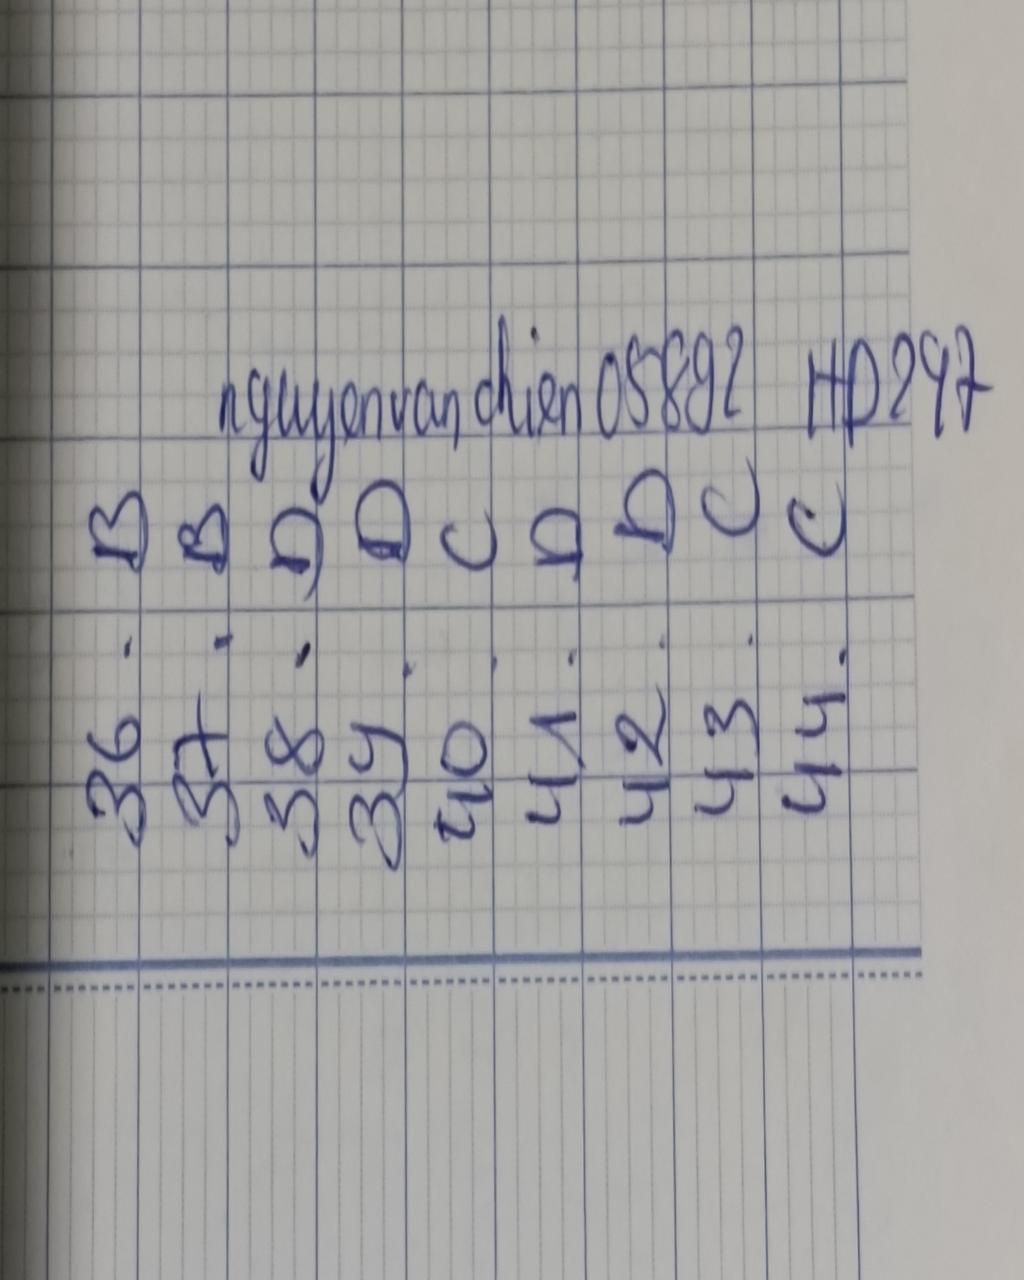 36. B
37. B
38. D
39. D
40. C
41. D
42. D
43. C
44. C
nguyenvanchien05892 HD297